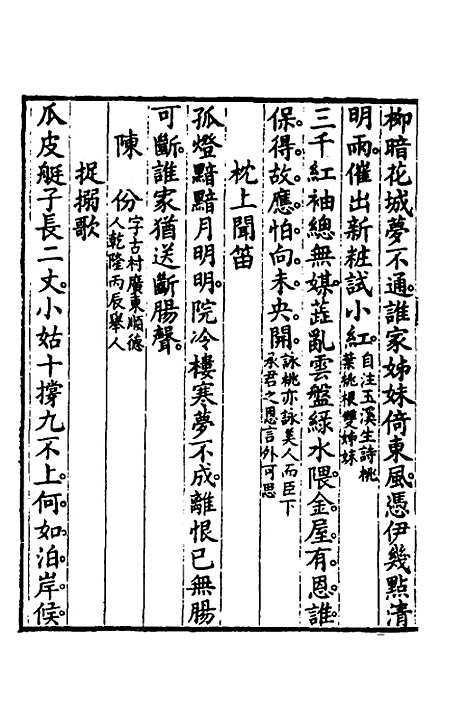 柳暗花城夢不通。誰家姊妹倚東風。憑伊幾點清
明雨。催出新粧試小紅。自注玉溪生詩桃
葉桃根雙姊妹
三千紅袖總無媒。蘂亂雲盤綠水隈。金屋有恩誰
保得。故應怕向未央開。詠桃亦詠美人而臣下
承君之恩言外可思
枕上聞笛
孤燈黯黯月明明。院冷樓寒夢不成。離恨已無腸
可斷。誰家猶送斷腸聲。
陳份字古村廣東順德
人乾隆丙辰舉人
捉搦歌
瓜皮艇子長二丈。小姑十撐九不上。何如泊岸候